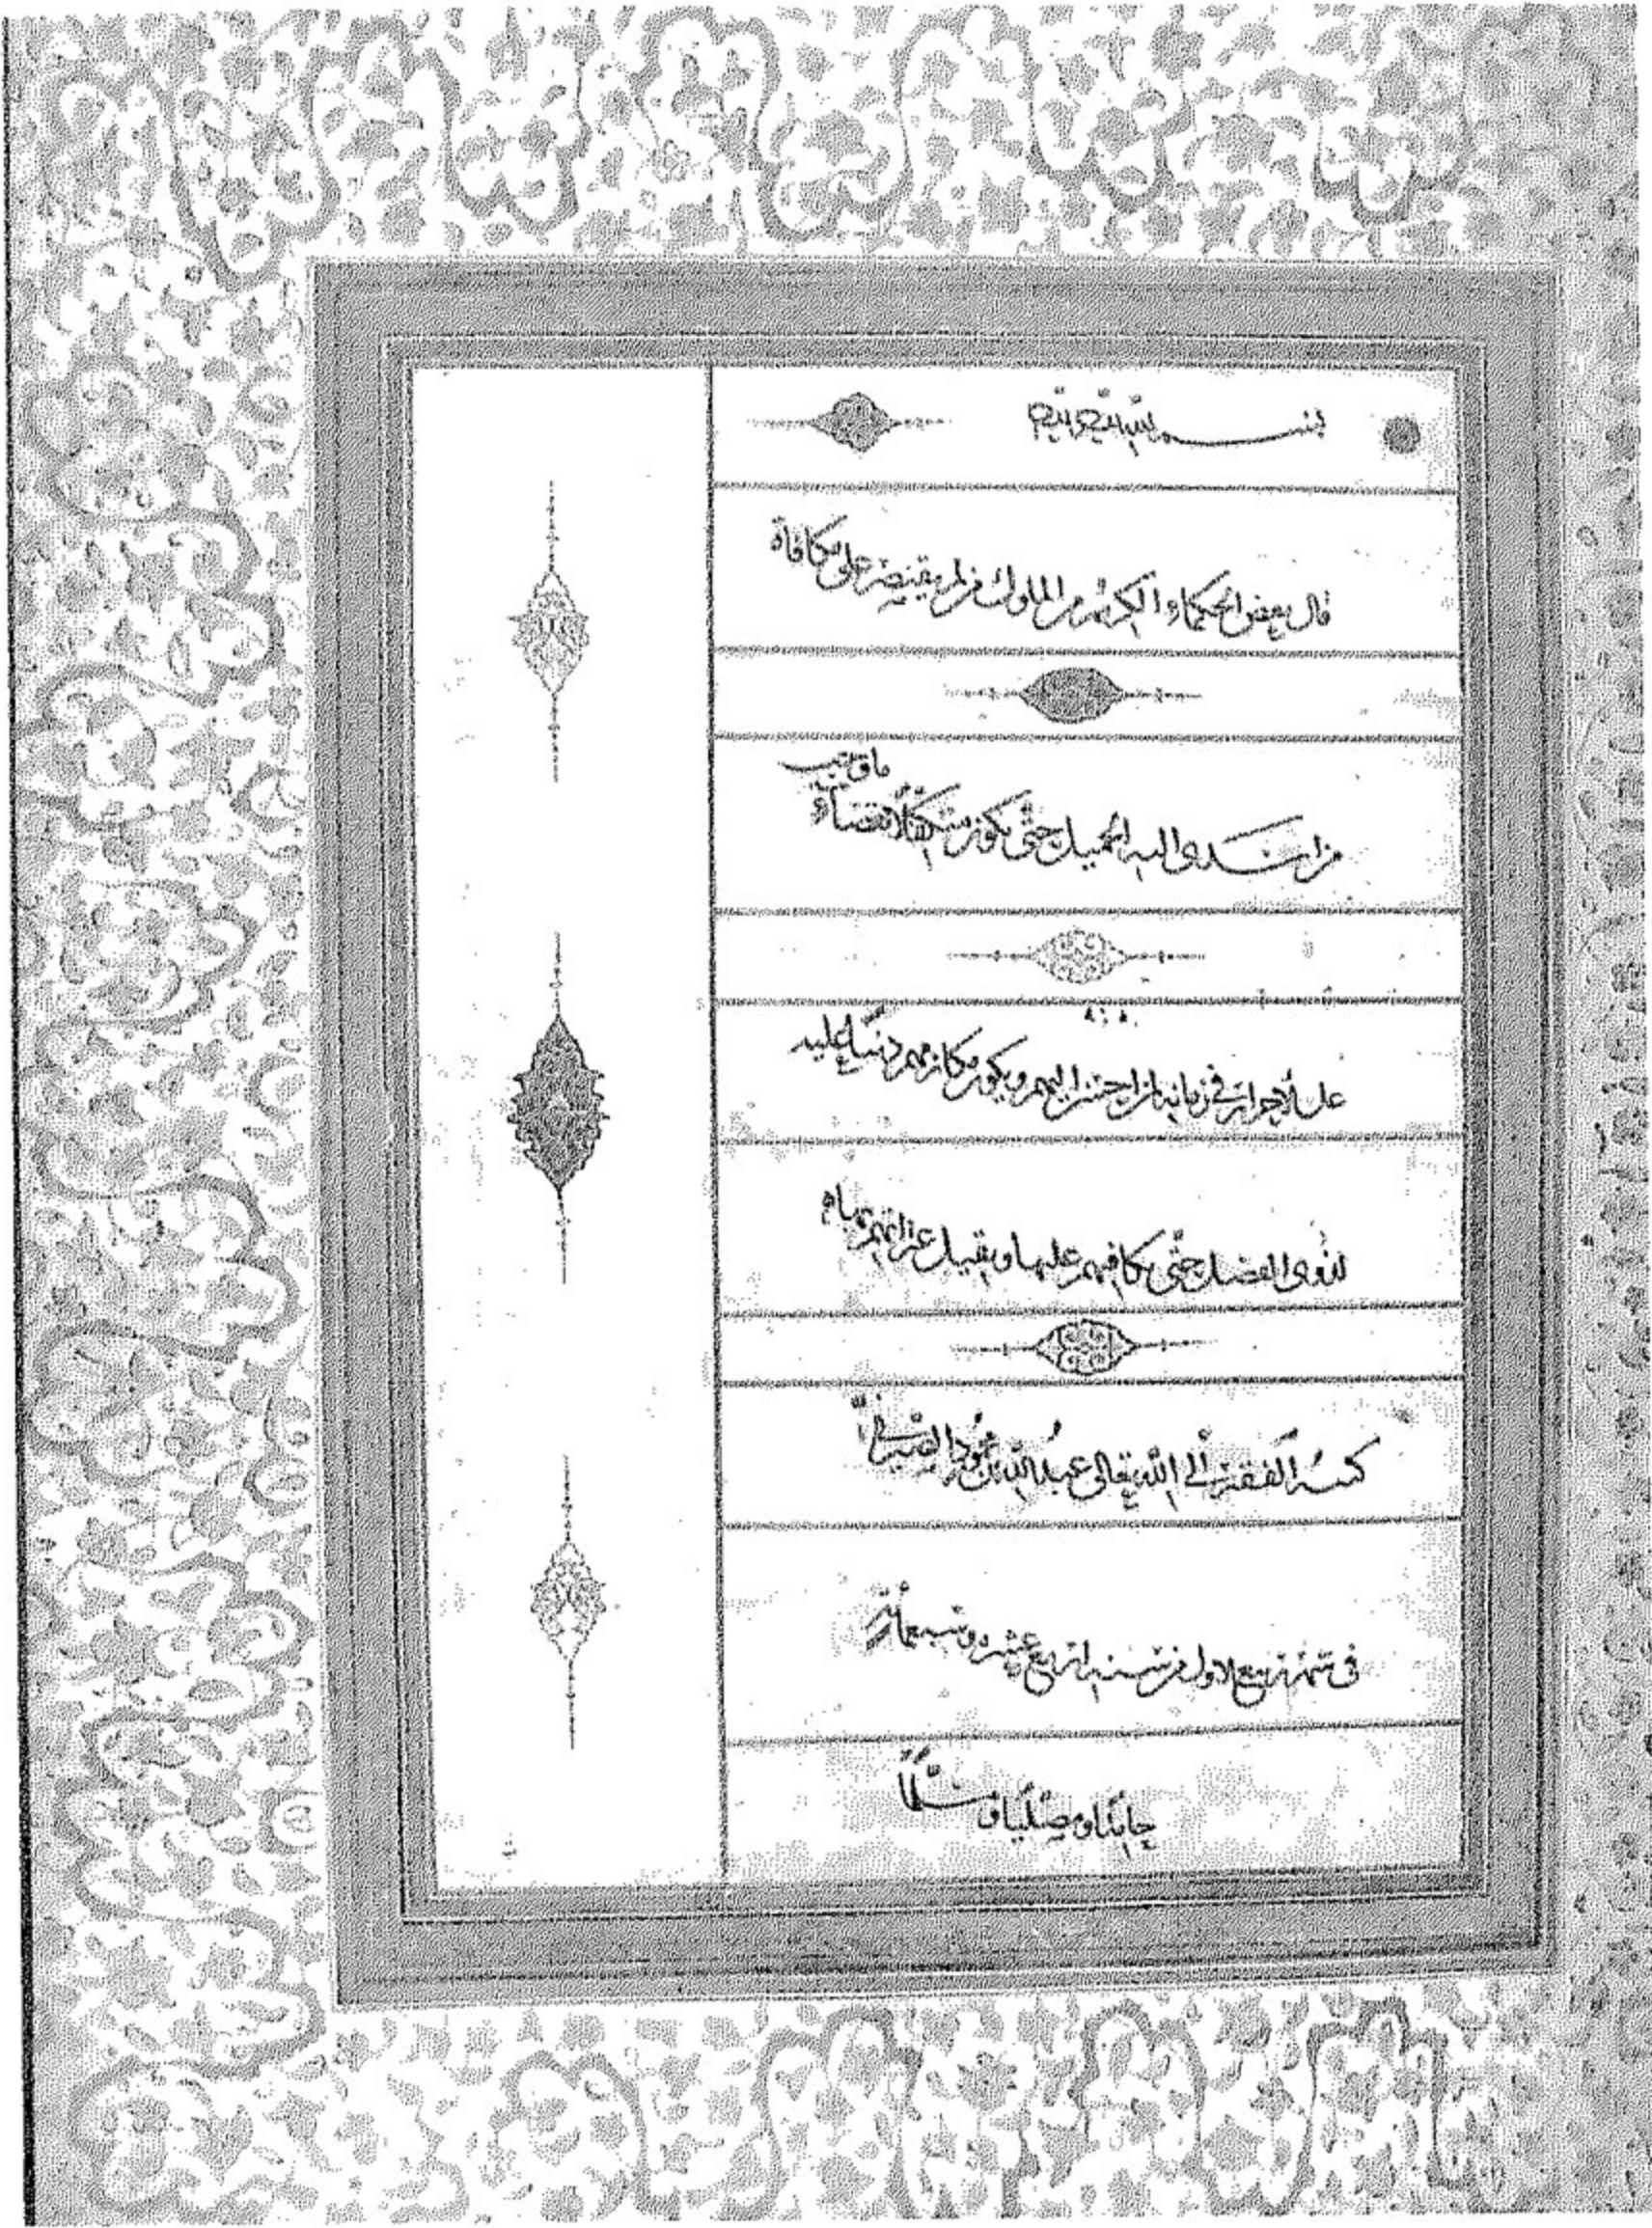 بسم الله الرحمن الرحيم
قال بعض الحكماء الكريم من الملوك من لم يقتصر على مكافاة
من اسدى اليه الجميل حتى يكون متكفلا بقضاء ما وجب
على الاحرار في زمانه لمن احسن اليهم ويكون مكانهم دينا عليه
لذوى الفضل حتى يكافيهم عليها ويقبل
كتبه الفقير الى الله تعالى عبد الله بن محمود الصيرفي
في شهر ربيع الاول من سنة اربع عشره وسبعمائة
حامدا ومصليا ومسلما